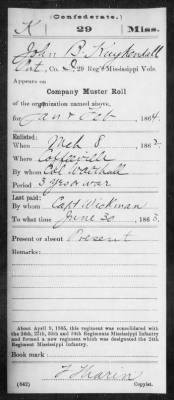 (Confederate.)
K 29 Miss.
John B. Kuykendall
Co. 29 Reg't Mississippi Vols.
Appears on
Company Muster Roll
of the organization named above,
for Jan & Feb, 1864.
Enlisted:
When Mch 8, 186
By whom Col Walthall
Period 3 yrs or war
Last paid:
By whom Capt Wickman
To what time June 30, 1863.
Present or absent Present
Remarks:
About April 9, 1865, this regiment was consolidated with
the 24th, 27th, 30th and 34th Regiments Mississippi Infantry
and formed a new regiment which was designated the 24th
Regiment Mississippi Infantry.
Book mark:
(642) Copyist.